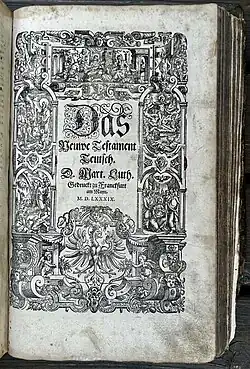 Das
Neuwe Testament
Teutsch.
D. Mart. Luth.
Gedruckt zu Franckfurt
am Mayn.
M. D. LXXXIX.